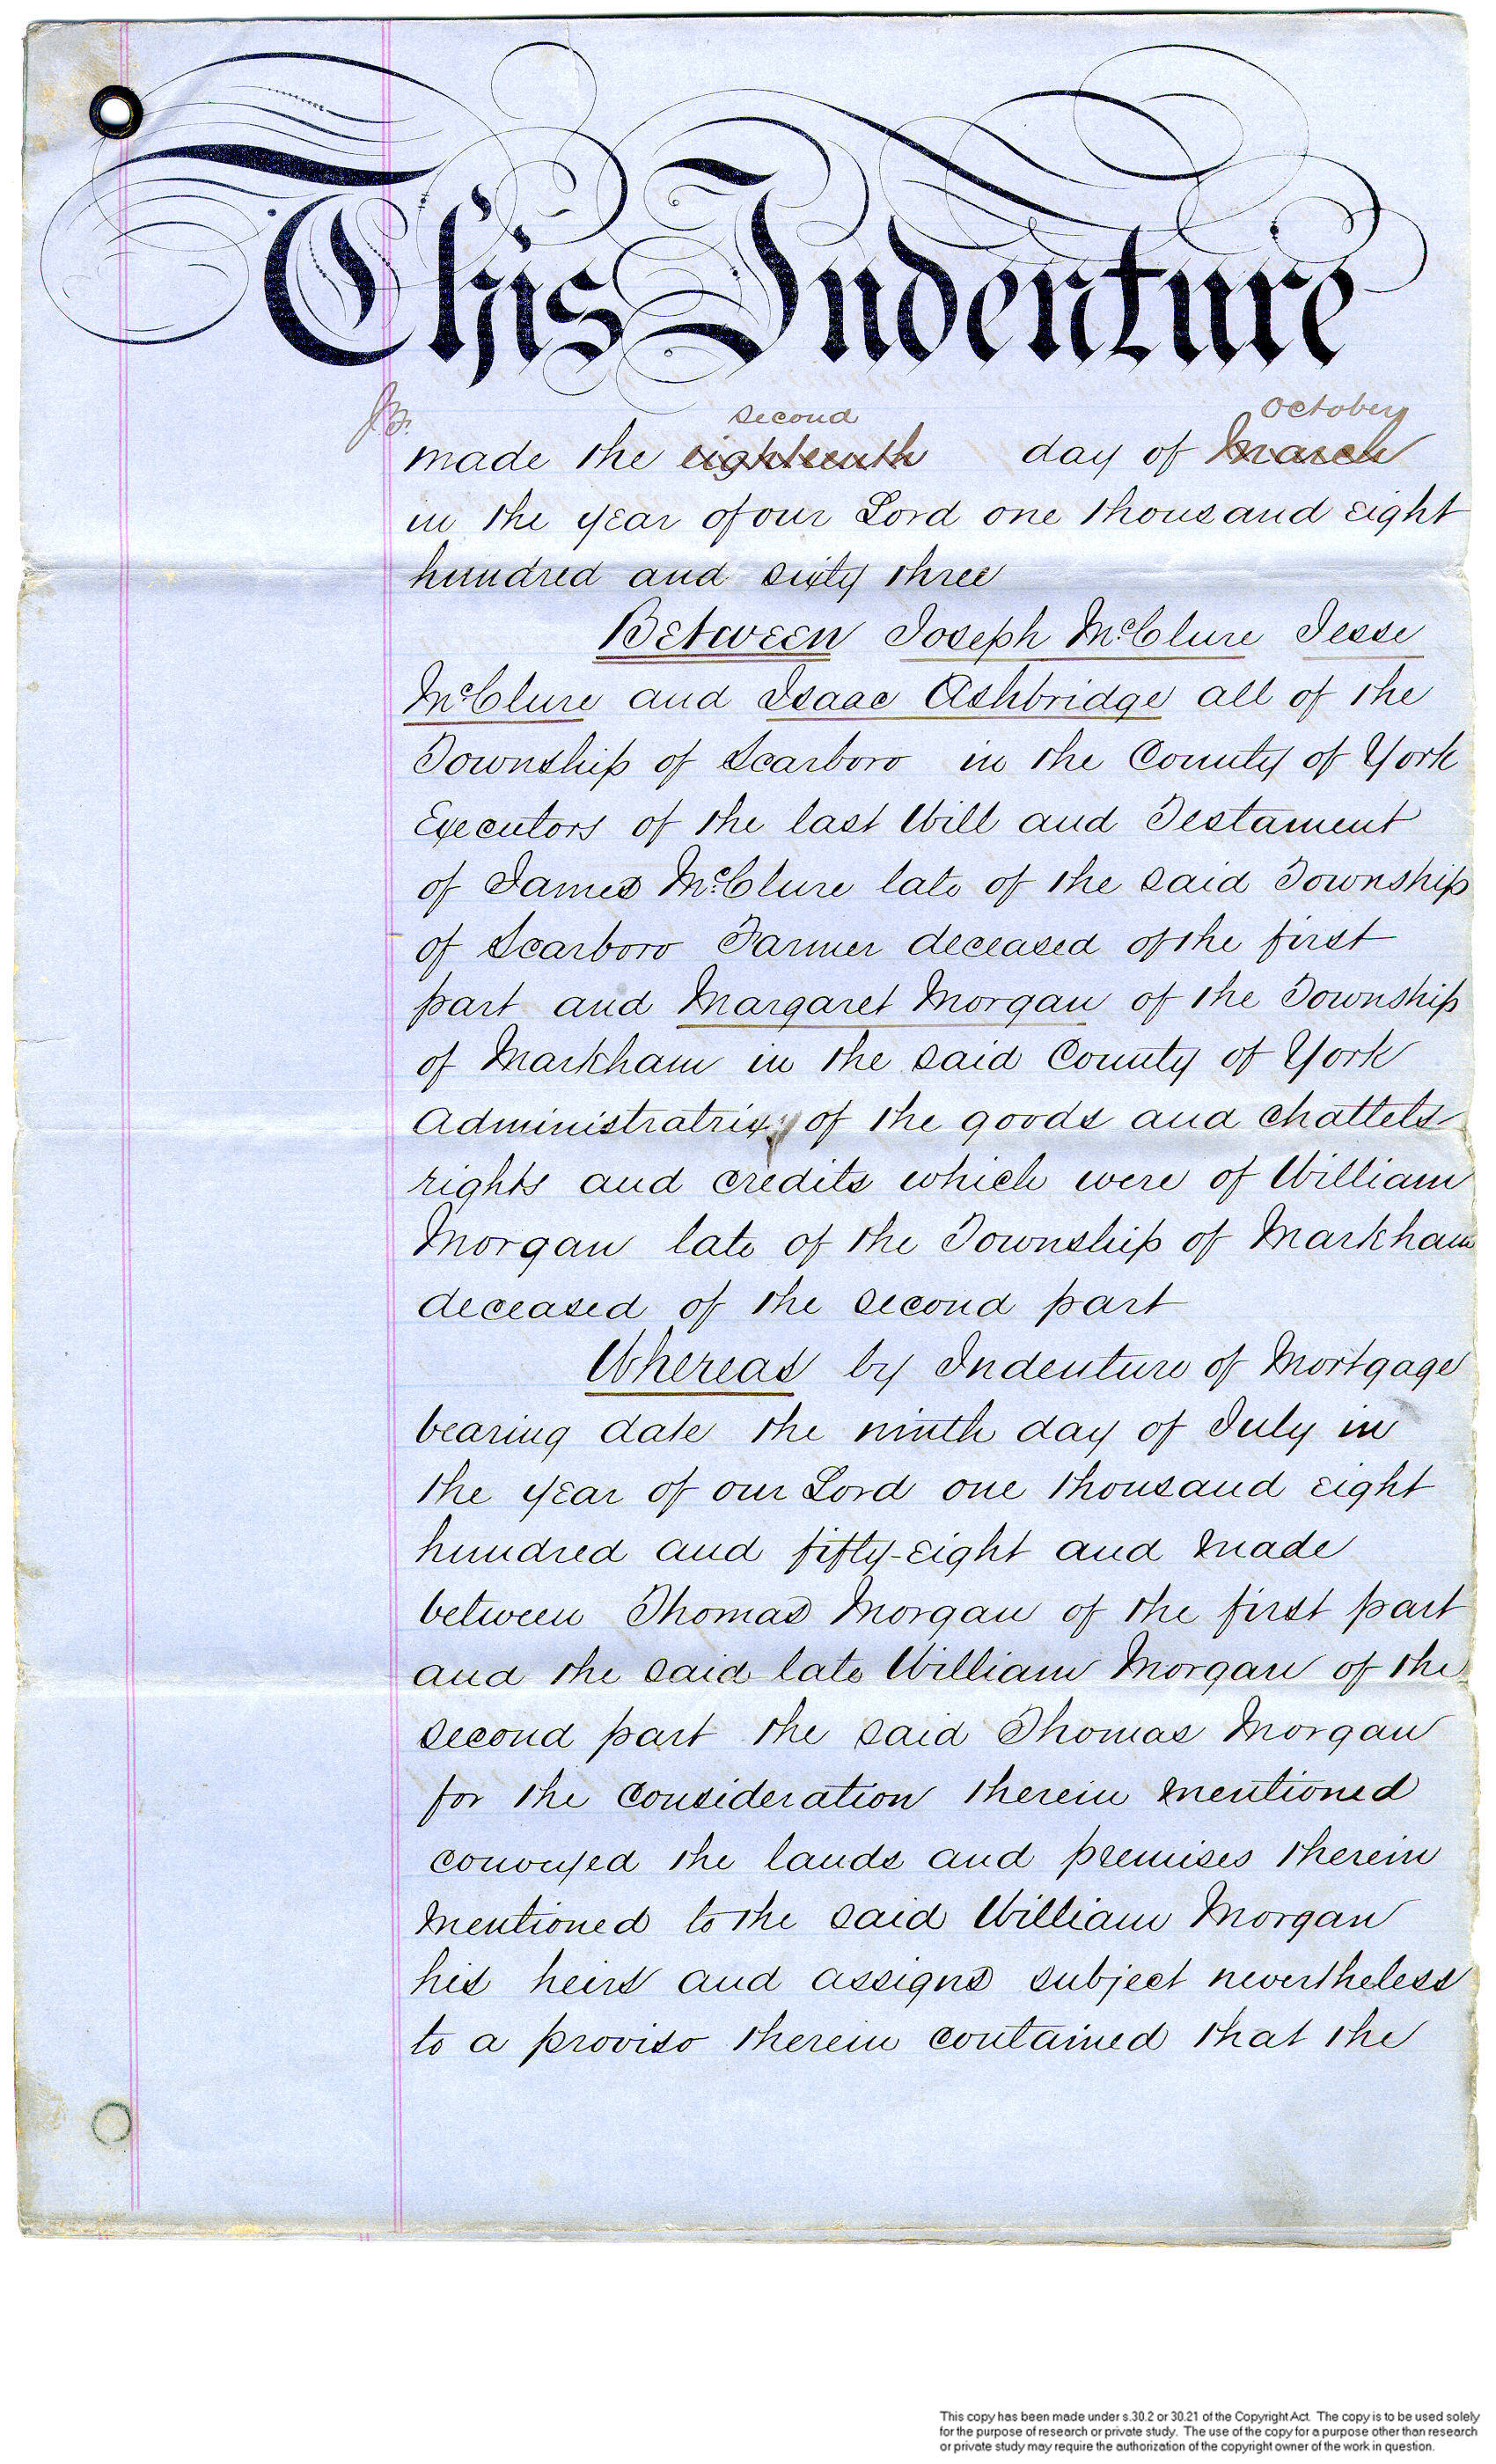 This Indenture
second October
J.B. made the eighteenth day of March
in the year of our Lord one thousand eight
hundred and sixty three
Between Joseph McClure Jesse
McClure and Isaac Ashbridge all of the
Township of Scarboro in the County of York
Executors of the last Will and Testament
of James McClure late of the said Township
of Scarboro Farmer deceased of the first
part and Margaret Morgan of the Township
of Markham in the said County of York
Administratrix of the goods and chattels
rights and credits which were of William
Morgan late of the Township of Markham
deceased of the second part
Whereas by Indenture of Mortgage
bearing date the ninth day of July in
the year of our Lord one thousand eight
hundred and fifty-eight and made
between Thomas Morgan of the first part
and the said late William Morgan of the
second part the said Thomas Morgan
for the consideration therein mentioned
conveyed the lands and premises therein
mentioned to the said William Morgan
his heirs and assigns subject nevertheless
to a proviso therein contained that the
This copy has been made under s.30.2 or 30.21 of the Copyright Act. The copy is to be used solely
for the purpose of research or private study. The use of the copy for a purpose other than research
or private study may require the authorization of the copyright owner of the work in question.